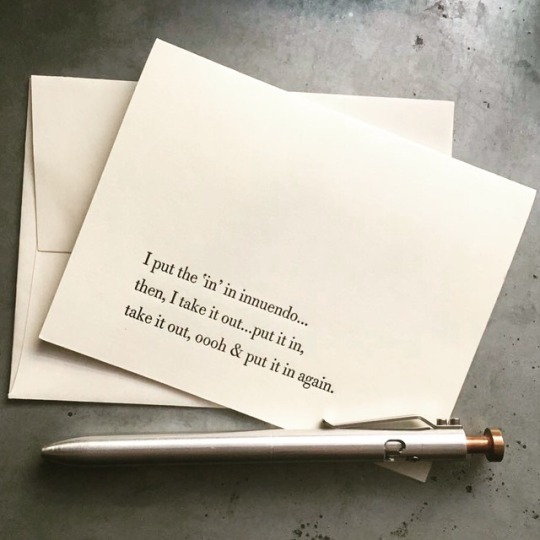 I put the 'in' in innuendo...
then, I take it out...put it in,
take it out, oooh & put it in again.